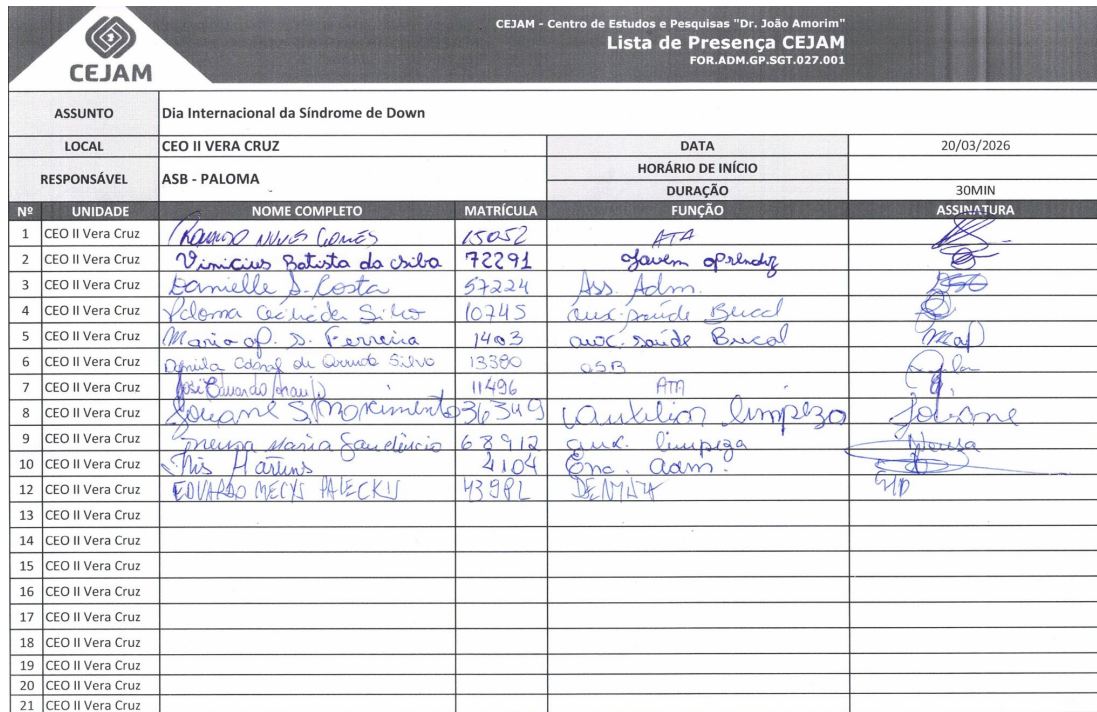 CEJAM
CEJAM - Centro de Estudos e Pesquisas "Dr. João Amorim"
Lista de Presença CEJAM
FOR.ADM.GP.SGT.027.001
ASSUNTO Dia Internacional da Síndrome de Down
LOCAL CEO II VERA CRUZ DATA 20/03/2026
RESPONSÁVEL ASB - PALOMA HORÁRIO DE INÍCIO
DURAÇÃO 30MIN
Nº UNIDADE NOME COMPLETO MATRÍCULA FUNÇÃO ASSINATURA
1 CEO II Vera Cruz GOMES 15052 ATA
2 CEO II Vera Cruz Vinicius Batista da 72291 Jovem aprendiz
3 CEO II Vera Cruz Danielle S. Costa 57224 Ass. Adm.
4 CEO II Vera Cruz Paloma Silva 10745 aux. saúde Bucal
5 CEO II Vera Cruz Maria ap. S. Ferreira 1403 aux. saúde Bucal
6 CEO II Vera Cruz de Silva 13380 ASB
7 CEO II Vera Cruz José Eduardo Araujo 11496 ATA
8 CEO II Vera Cruz S. 36349 auxiliar limpeza
9 CEO II Vera Cruz Maria 68912 aux. limpeza Neusa
10 CEO II Vera Cruz Martins 4104 Enc. adm.
12 CEO II Vera Cruz EDUARDO
13 CEO II Vera Cruz
14 CEO II Vera Cruz
15 CEO II Vera Cruz
16 CEO II Vera Cruz
17 CEO II Vera Cruz
18 CEO II Vera Cruz
19 CEO II Vera Cruz
20 CEO II Vera Cruz
21 CEO II Vera Cruz